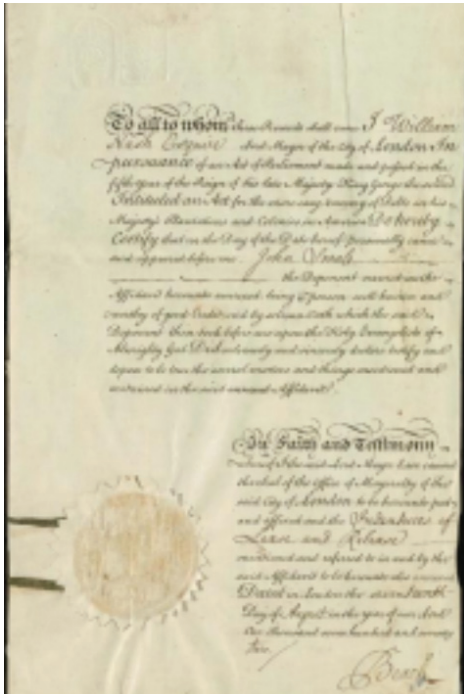 To all to whom these Presents shall come I William
Nash Esquire Lord Mayor of the City of London In
pursuance of an Act of Parliament made and passed in the
fifth year of the Reign of his late Majesty King George the second
Intituled an Act for the more easy recovery of Debts in his
Majestys Plantations and Colonies in America Do hereby
Certify that on the Day of the Date hereof personally came
and appeared before me John
the Deponent named in the
Affidavit hereunto annexed being a person well known and
worthy of good Credit and by solemn Oath which the said
Deponent then took before me upon the Holy Evangelists of
Almighty God Did solemnly and sincerely declare testify and
depose to be true the several matters and things mentioned and
contained in the said annexed Affidavit
In Faith and Testimony
whereof I the said Lord Mayor have caused
the Seal of the Office of Mayoralty of the
said City of London to be hereunto put
and affixed and the Indentures of
Lease and Release
mentioned and referred to in and by the
said Affidavit to be hereunto also annexed
Dated in London the
Day of August in the year of our Lord
One thousand seven hundred and seventy
two
Beach